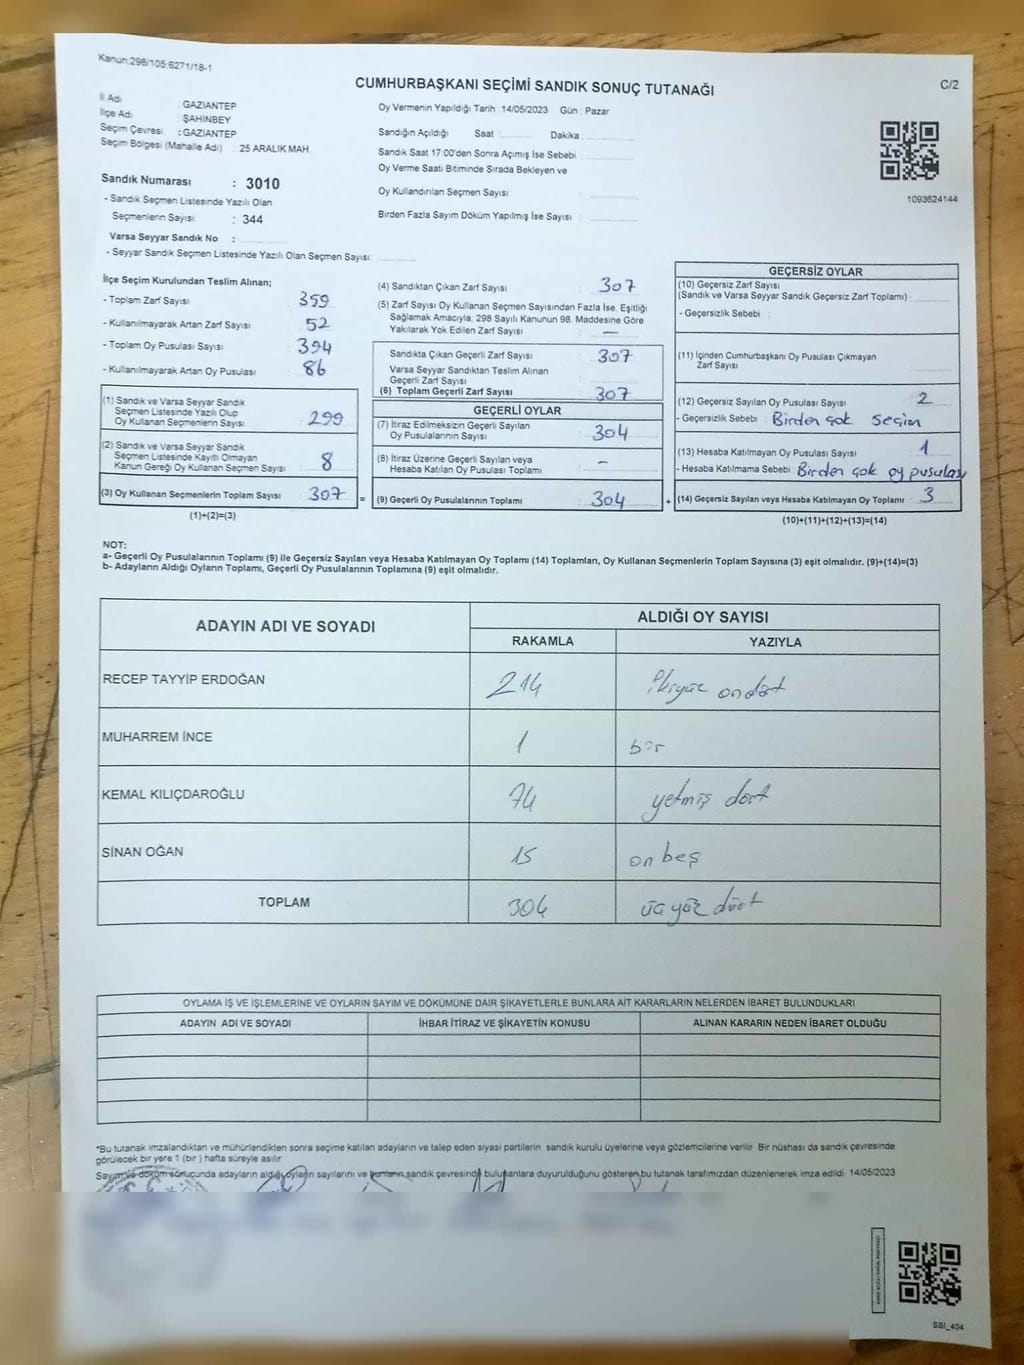 Kanun:298/105 6271/18-1
CUMHURBAŞKANI SEÇİMİ SANDIK SONUÇ TUTANAĞI
C/2
İl Adı : GAZİANTEP
İlçe Adı : ŞAHİNBEY
Seçim Çevresi : GAZİANTEP
Seçim Bölgesi (Mahalle Adı) : 25 ARALIK MAH.
Sandık Numarası : 3010
- Sandık Seçmen Listesinde Yazılı Olan
Seçmenlerin Sayısı : 344
Varsa Seyyar Sandık No :
- Seyyar Sandık Seçmen Listesinde Yazılı Olan Seçmen Sayısı:
Oy Vermenin Yapıldığı Tarih : 14/05/2023 Gün : Pazar
Sandığın Açıldığı Saat : Dakika :
Sandık Saat 17:00'den Sonra Açımış İse Sebebi :
Oy Verme Saati Bitiminde Sırada Bekleyen ve
Oy Kullandırılan Seçmen Sayısı :
Birden Fazla Sayım Döküm Yapılmış İse Sayısı :
1093624144
İlçe Seçim Kurulundan Teslim Alınan;
- Toplam Zarf Sayısı : 359
- Kullanılmayarak Artan Zarf Sayısı : 52
- Toplam Oy Pusulası Sayısı : 394
- Kullanılmayarak Artan Oy Pusulası : 86
(1) Sandık ve Varsa Seyyar Sandık
Seçmen Listesinde Yazılı Olup
Oy Kullanan Seçmenlerin Sayısı : 299
(2) Sandık ve Varsa Seyyar Sandık
Seçmen Listesinde Kayıtlı Olmayan
Kanun Gereği Oy Kullanan Seçmen Sayısı : 8
(3) Oy Kullanan Seçmenlerin Toplam Sayısı : 307
(1)+(2)=(3)
(4) Sandıktan Çıkan Zarf Sayısı : 307
(5) Zarf Sayısı Oy Kullanan Seçmen Sayısından Fazla İse, Eşitliği
Sağlamak Amacıyla; 298 Sayılı Kanunun 98. Maddesine Göre
Yakılarak Yok Edilen Zarf Sayısı : —
Sandıkta Çıkan Geçerli Zarf Sayısı : 307
Varsa Seyyar Sandıktan Teslim Alınan
Geçerli Zarf Sayısı :
(6) Toplam Geçerli Zarf Sayısı : 307
GEÇERLİ OYLAR
(7) İtiraz Edilmeksizin Geçerli Sayılan
Oy Pusulalarının Sayısı : 304
(8) İtiraz Üzerine Geçerli Sayılan veya
Hesaba Katılan Oy Pusulası Toplamı : –
= (9) Geçerli Oy Pusulalarının Toplamı : 304 +
GEÇERSİZ OYLAR
(10) Geçersiz Zarf Sayısı
(Sandık ve Varsa Seyyar Sandık Geçersiz Zarf Toplamı) :
- Geçersizlik Sebebi :
(11) İçinden Cumhurbaşkanı Oy Pusulası Çıkmayan
Zarf Sayısı :
(12) Geçersiz Sayılan Oy Pusulası Sayısı : 2
- Geçersizlik Sebebi : Birden çok seçim
(13) Hesaba Katılmayan Oy Pusulası Sayısı : 1
- Hesaba Katılmama Sebebi : Birden çok oy pusulası
(14) Geçersiz Sayılan veya Hesaba Katılmayan Oy Toplamı : 3
(10)+(11)+(12)+(13)=(14)
NOT:
a- Geçerli Oy Pusulalarının Toplamı (9) ile Geçersiz Sayılan veya Hesaba Katılmayan Oy Toplamı (14) Toplamları, Oy Kullanan Seçmenlerin Toplam Sayısına (3) eşit olmalıdır. (9)+(14)=(3)
b- Adayların Aldığı Oyların Toplamı, Geçerli Oy Pusulalarının Toplamına (9) eşit olmalıdır.
ADAYIN ADI VE SOYADI
ALDIĞI OY SAYISI
RAKAMLA YAZIYLA
RECEP TAYYİP ERDOĞAN 214 ikiyüz ondört
MUHARREM İNCE 1 bir
KEMAL KILIÇDAROĞLU 74 yetmiş dört
SİNAN OĞAN 15 on beş
TOPLAM 304 üç yüz dört
OYLAMA İŞ VE İŞLEMLERİNE VE OYLARIN SAYIM VE DÖKÜMÜNE DAİR ŞİKAYETLERLE BUNLARA AİT KARARLARIN NELERDEN İBARET BULUNDUKLARI
ADAYIN ADI VE SOYADI İHBAR İTİRAZ VE ŞİKAYETİN KONUSU ALINAN KARARIN NEDEN İBARET OLDUĞU
*Bu tutanak imzalandıktan ve mühürlendikten sonra seçime katılan adayların ve talep eden siyasi partilerin sandık kurulu üyelerine veya gözlemcilerine verilir. Bir nüshası da sandık çevresinde
görülecek bir yere 1 (bir) hafta süreyle asılır.
Sayım ve döküm sonucunda adayların aldığı oyların sayılarını ve bunların sandık çevresinde bulunanlara duyurulduğunu gösteren bu tutanak tarafımızdan düzenlenerek imza edildi. 14/05/2023
SSI_404